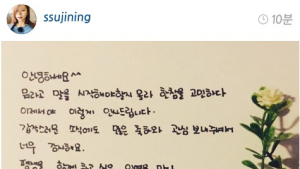 ssujining
10분
안녕하세요^^
뭐라고 말을 시작해야할지 몰라 한참을 고민하다
이제서야 이렇게 인사드립니다.
갑작스러운 소식에도 많은 축하와 관심 보내주셔서
너무 감사해요.
평생을 함께 하고 싶은 인연을 만나